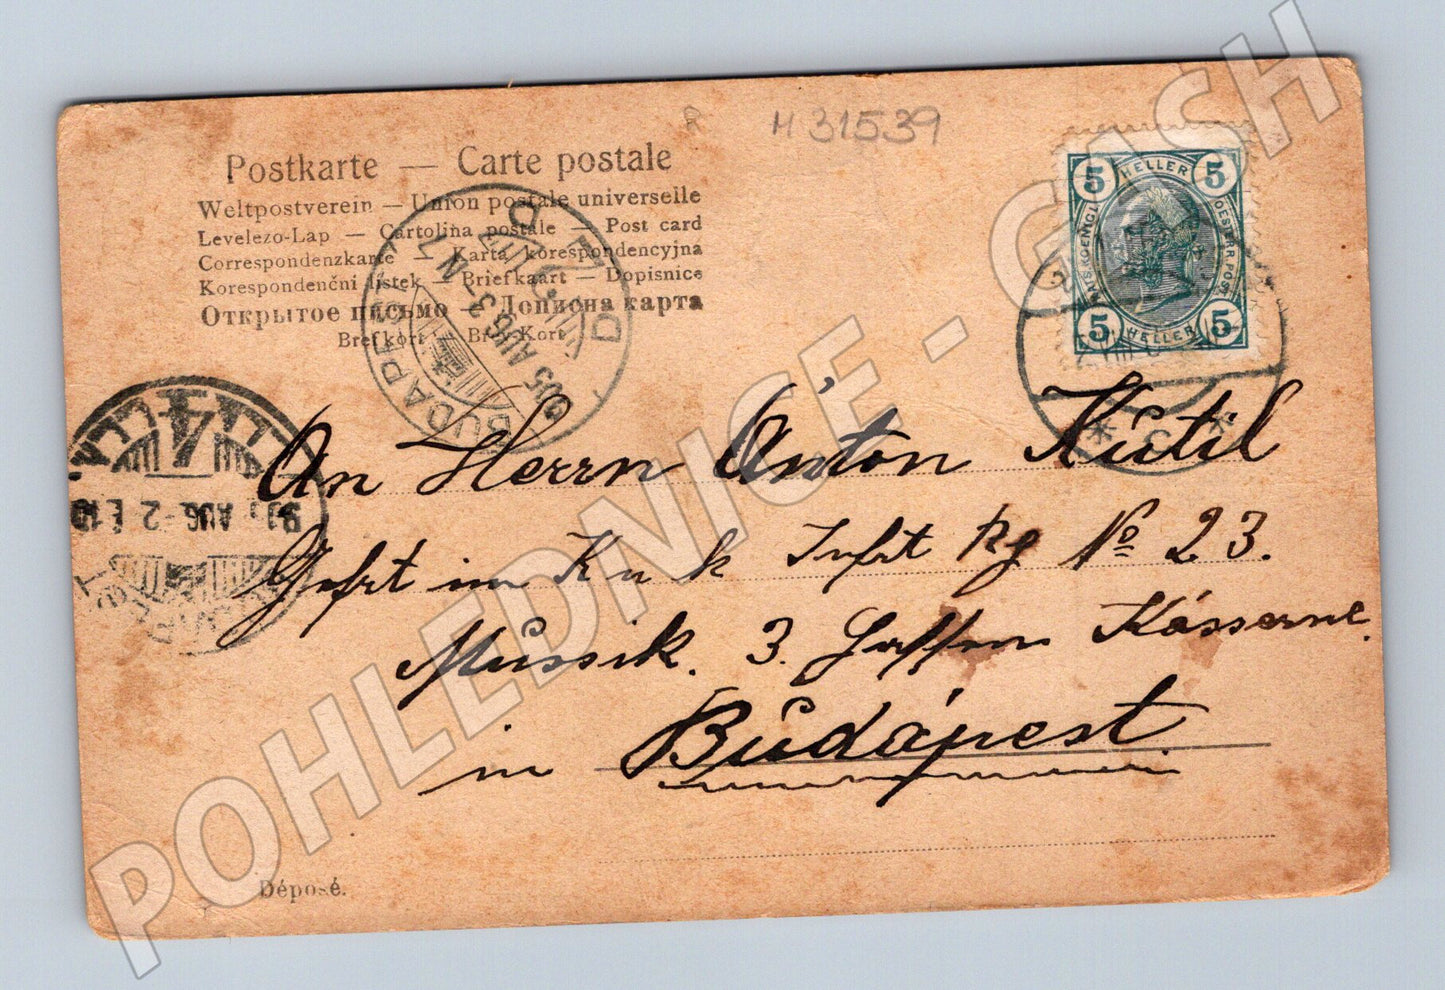 H 31539
Postkarte — Carte postale
Weltpostverein — Union postale universelle
Levelezo-Lap — Cartolina postale — Post card
Correspondenzkarte — Karta korespondencyjna
Korespondenční lístek — Briefkaart — Dopisnice
Открытое письмо — Дописна карта
Brefkort — Brev-Kort
5 HELLER 5
5 HELLER 5
BUDAPEST
905 AUG 3 N 7
4
AUG -2
BUDAPEST
An Herrn Anton Kůtil
Gefrt im K u k Infrt Rg No 23.
Mussik. 3. Kásserne.
in Budápest.
Déposé.
POHLEDNICE - GASH